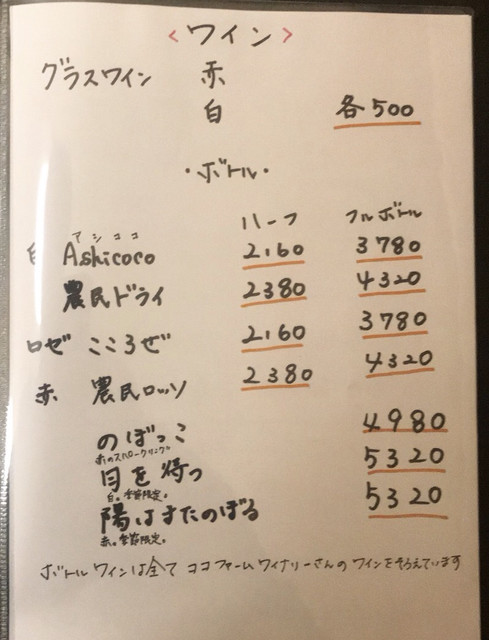 <ワイン>
グラスワイン 赤
白 各500
・ボトル・
ハーフ フルボトル
アシココ
白 Ashicoco 2,160 3780
農民ドライ 2380 4320
ロゼ こころぜ 2,160 3780
赤 農民ロッソ 2380 4320
のぼっこ 4980
赤のスパークリング
月を待つ 5320
白。季節限定。
陽はまたのぼる 5320
赤。季節限定。
ボトルワインは全て ココファームワイナリーさんの ワインをそろえています